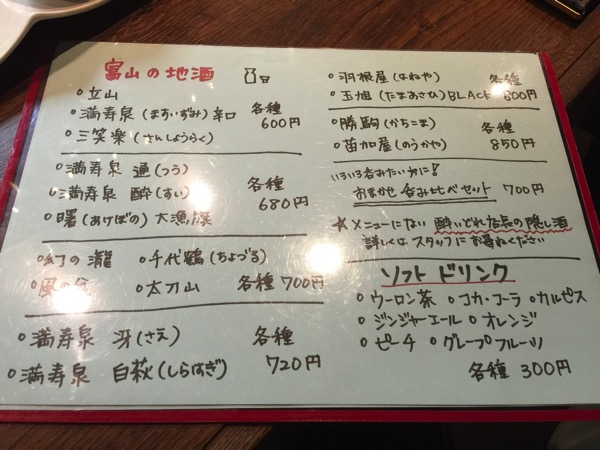 富山の地酒
○立山
○満寿泉(ますいずみ)辛口
○三笑楽(さんしょうらく)
各種
600円
○満寿泉 通(つう)
○満寿泉 酔(すい)
○曙(あけぼの)大漁旗
各種
680円
○幻の瀧 ○千代鶴(ちよづる)
○風の盆 ○太刀山 各種700円
○満寿泉 冴(さえ)
○満寿泉 白萩(しらはぎ)
各種
720円
○羽根屋(はねや)
○玉旭(たまあさひ)BLACK
各種
800円
○勝駒(かちこま)
○苗加屋(のうかや)
各種
850円
いろいろ呑みたい方に!
おまかせ呑み比べセット 700円
☆メニューにない 酔いどれ店長の隠し酒
詳しくはスタッフにお尋ねください
ソフトドリンク
○ウーロン茶 ○コカ・コーラ ○カルピス
○ジンジャーエール ○オレンジ
○ピーチ ○グレープフルーツ
各種 300円